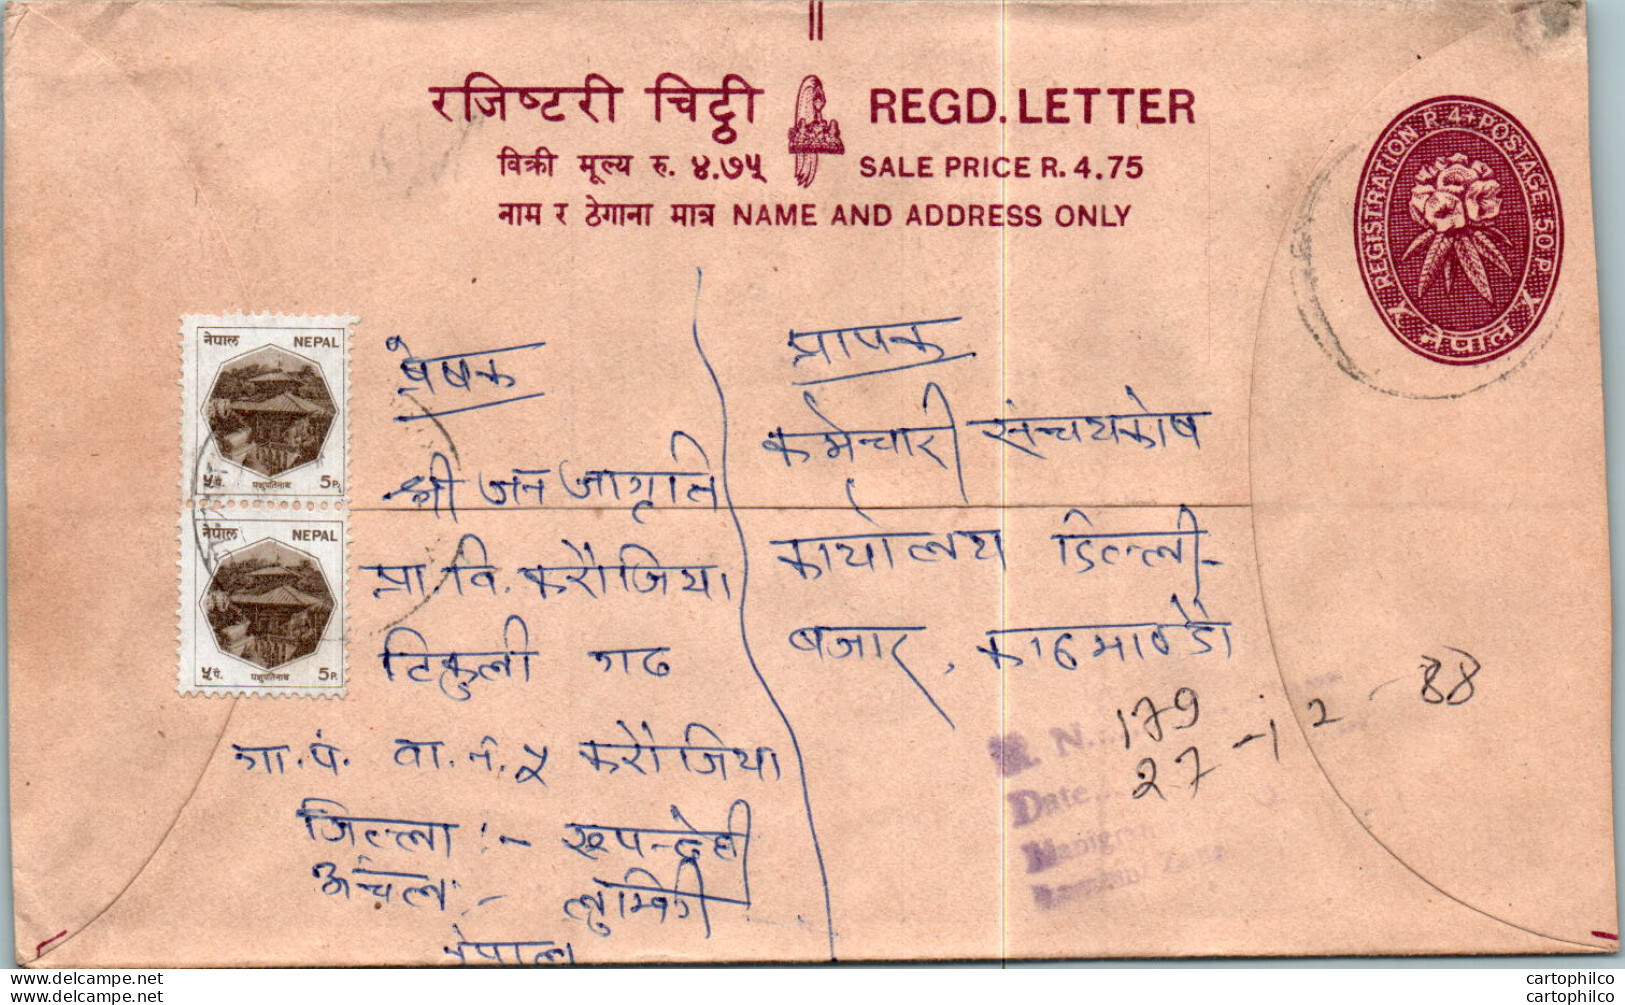 रजिष्टरी चिट्ठी REGD. LETTER
विक्री मूल्य रु. ४.७५ SALE PRICE R. 4.75
नाम र ठेगाना मात्र NAME AND ADDRESS ONLY
REGISTRATION R. 4+POSTAGE 50 P.
नेपाल
नेपाल NEPAL
५ पै. पशुपतिनाथ 5P.
नेपाल NEPAL
५ पै. पशुपतिनाथ 5P.
प्रेषक
श्री जन जागृति
प्रा. वि. करौजिया
टिकुली गढ
गा. पं. वा. नं. ५ करौजिया
जिल्ला :- रूपन्देही
अंचल :- लुम्बिनी
नेपाल
प्रापक
कर्मचारी संचयकोष
कार्यालय डिल्ली-
बजार, काठमाण्डौ
R. N. 179
Date 27-12-88
www.delcampe.net
www.delcampe.net
cartophilco
cartophilco